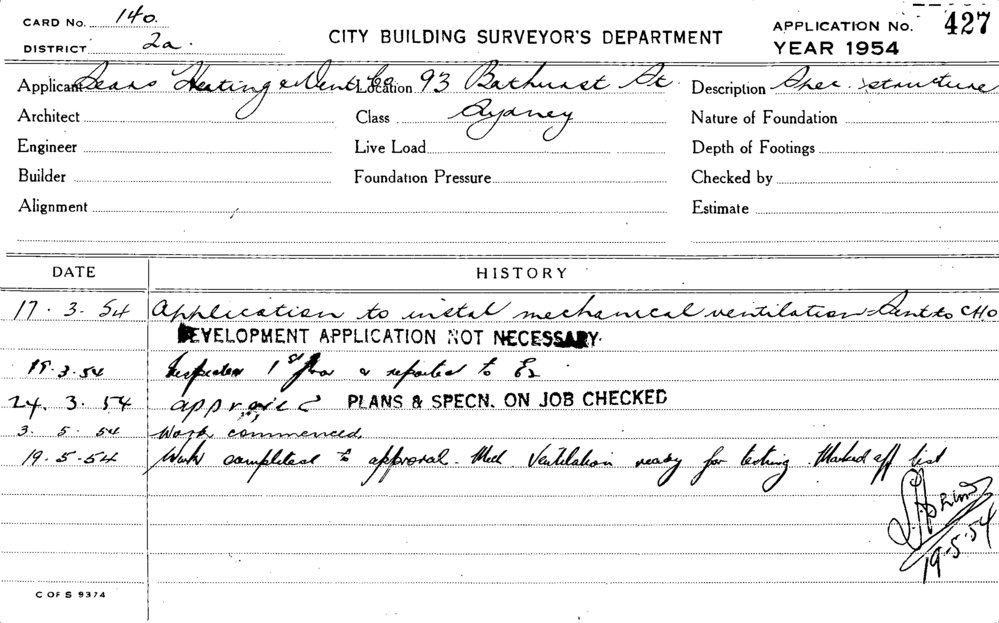 CARD No. 140.
DISTRICT 2a.
CITY BUILDING SURVEYOR'S DEPARTMENT
APPLICATION No. 427
YEAR 1954
Applicant Sears Heating & Vent Co Location 93 Bathurst St Description structure
Architect Class Sydney Nature of Foundation
Engineer Live Load Depth of Footings
Builder Foundation Pressure Checked by
Alignment Estimate
DATE HISTORY
17.3.54 Application to instal mechanical ventilation Sent to CHO
DEVELOPMENT APPLICATION NOT NECESSARY.
19.3.54 Inspected 1st floor & reported to
24.3.54 approved PLANS & SPECN. ON JOB CHECKED
3.5.54 Work commenced.
19.5.54 Work completed to approval. Mech. Ventilation ready for testing. Marked off list
19.5.54
C OF S 9374